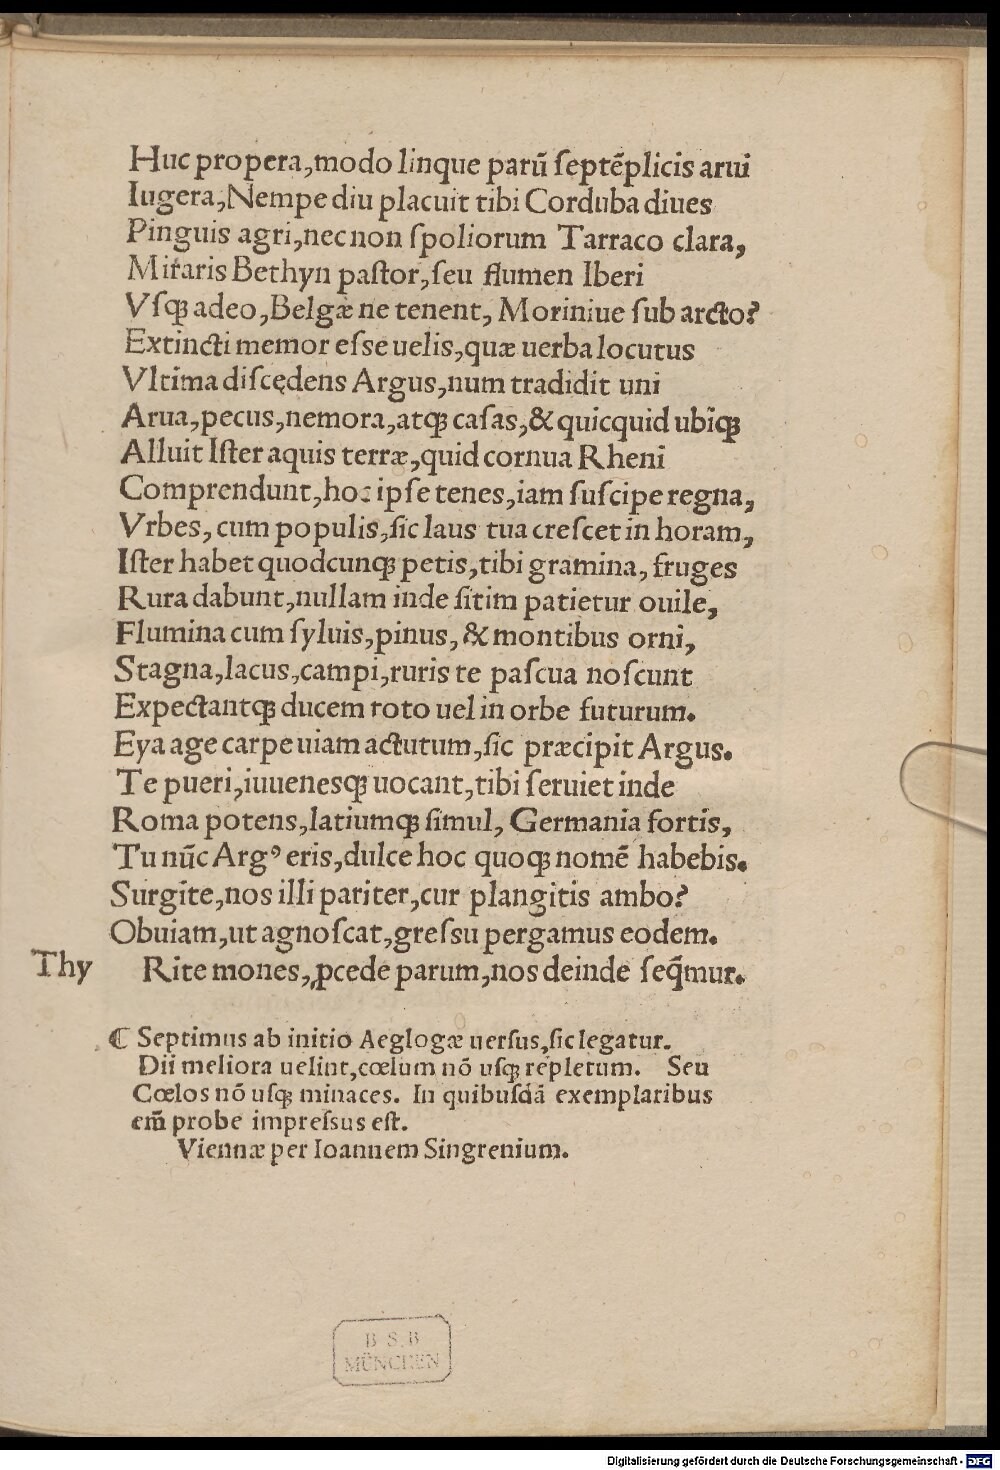 Huc propera,modo linque parū ſeptēplicis arui
Iugera,Nempe diu placuit tibi Corduba diues
Pinguis agri,nec non ſpoliorum Tarraco clara,
Miraris Bethyn paſtor,ſeu flumen Iberi
Vſqꝫ adeo,Belgæ ne tenent, Moriniue ſub arcto?
Extincti memor eſse uelis,quæ uerba locutus
Vltima diſcędens Argus,num tradidit uni
Arua,pecus,nemora,atqꝫ caſas,& quicquid ubiqꝫ
Alluit Iſter aquis terræ,quid cornua Rheni
Comprendunt,hoc ipſe tenes,iam ſuſcipe regna,
Vrbes, cum populis,ſic laus tua creſcet in horam,
Iſter habet quodcunqꝫ petis,tibi gramina, fruges
Rura dabunt,nullam inde ſitim patietur ouile,
Flumina cum ſyluis,pinus, & montibus orni,
Stagna,lacus,campi,ruris te paſcua noſcunt
Expectantqꝫ ducem toto uel in orbe futurum.
Eya age carpe uiam actutum,ſic præcipit Argus.
Te pueri,iuuenesqꝫ uocant,tibi ſeruiet inde
Roma potens,latiumqꝫ ſimul, Germania fortis,
Tu nūc Argꝰ eris,dulce hoc quoqꝫ nomē habebis.
Surgite,nos illi pariter,cur plangitis ambo?
Obuiam,ut agnoſcat,greſsu pergamus eodem.
Thy Rite mones,ꝓcede parum,nos deinde ſeq̄mur.
⁋ Septimus ab initio Aeglogæ uerſus,ſic legatur.
Dii meliora uelint,cœlum nō uſqꝫ repletum. Seu
Cœlos nō uſqꝫ minaces. In quibuſdā exemplaribus
em̄ probe impreſsus eſt.
Viennæ per Ioannem Singrenium.
B S B
MÜNCHEN
Digitalisierung gefördert durch die Deutsche Forschungsgemeinschaft - DFG